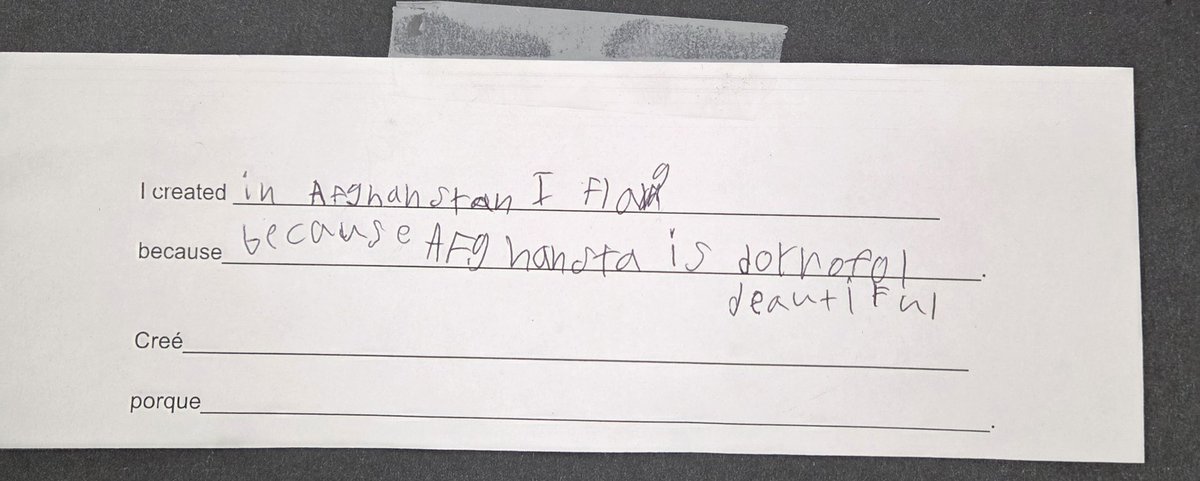 I created in Afghanstan I flag
because because AFghansta is dornofol.
deautiful
Creé
porque .